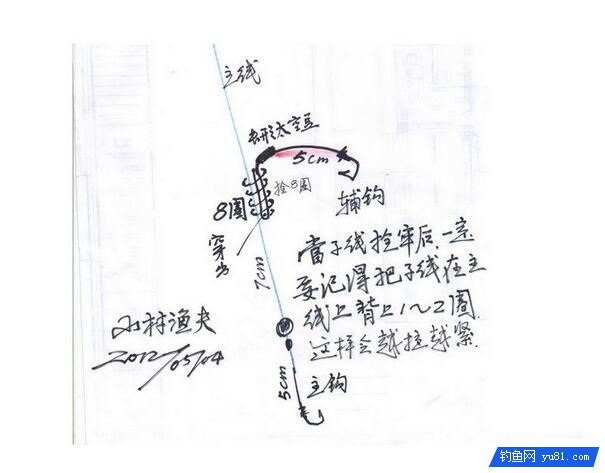 主线
太空豆
5cm
拴8圈
8圈
辅钩
穿出
7cm
當子线拴牢后.一定
要记得把子线在主
线上背上1~2圈.
这样会越拉越紧.
小村渔夫
2012/05/04
5cm
主钩
钓鱼网 yu81.com